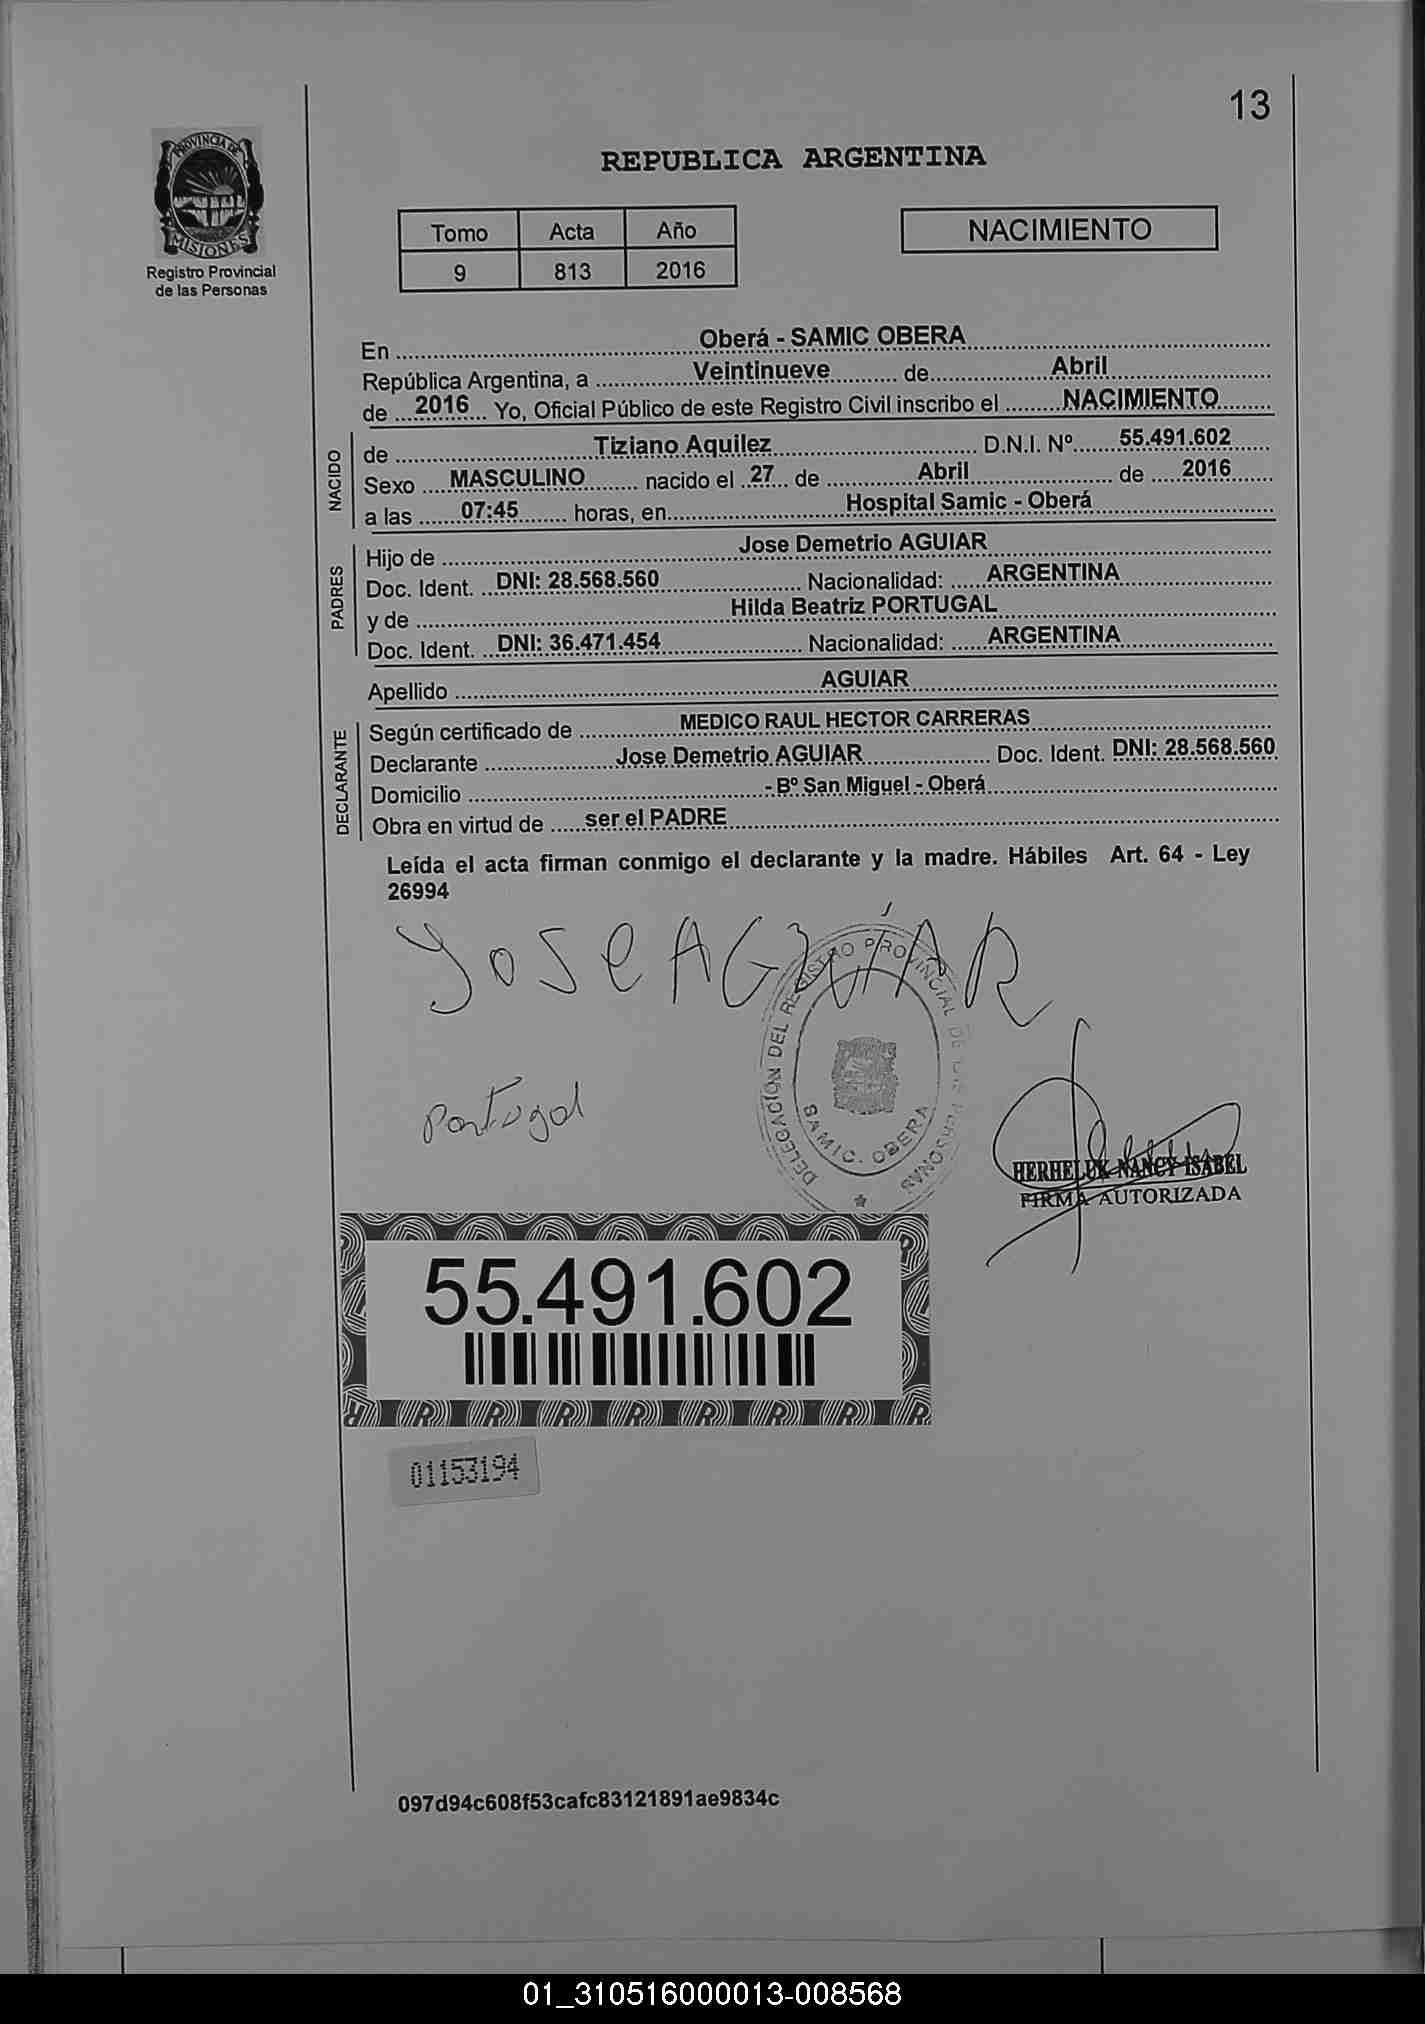 13
PROVINCIA DE
MISIONES
Registro Provincial
de las Personas
REPUBLICA ARGENTINA
Tomo Acta Año
9 813 2016
NACIMIENTO
En Oberá - SAMIC OBERA
República Argentina, a Veintinueve de Abril
de 2016 Yo, Oficial Público de este Registro Civil inscribo el NACIMIENTO
NACIDO
de Tiziano Aquilez D.N.I. Nº 55.491.602
Sexo MASCULINO nacido el 27 de Abril de 2016
a las 07:45 horas, en Hospital Samic - Oberá
PADRES
Hijo de Jose Demetrio AGUIAR
Doc. Ident. DNI: 28.568.560 Nacionalidad: ARGENTINA
y de Hilda Beatriz PORTUGAL
Doc. Ident. DNI: 36.471.454 Nacionalidad: ARGENTINA
Apellido AGUIAR
DECLARANTE
Según certificado de MEDICO RAUL HECTOR CARRERAS
Declarante Jose Demetrio AGUIAR Doc. Ident. DNI: 28.568.560
Domicilio - Bº San Miguel - Oberá
Obra en virtud de ser el PADRE
Leída el acta firman conmigo el declarante y la madre. Hábiles Art. 64 - Ley
26994
JOSE AGUÍAR
DELEGACION DEL REGISTRO PROVINCIAL DE LAS PERSONAS
SAMIC. OBERA
Portugal
HERHELUK NANCY ISABEL
FIRMA AUTORIZADA
55.491.602
01153194
097d94c608f53cafc83121891ae9834c
01_310516000013-008568